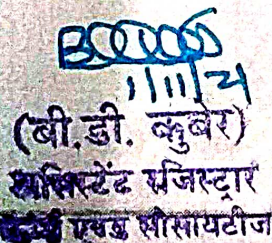 11/11/21
(बी.डी. कुबेर)
असिस्टेंट रजिस्ट्रार
एण्ड सोसायटीज